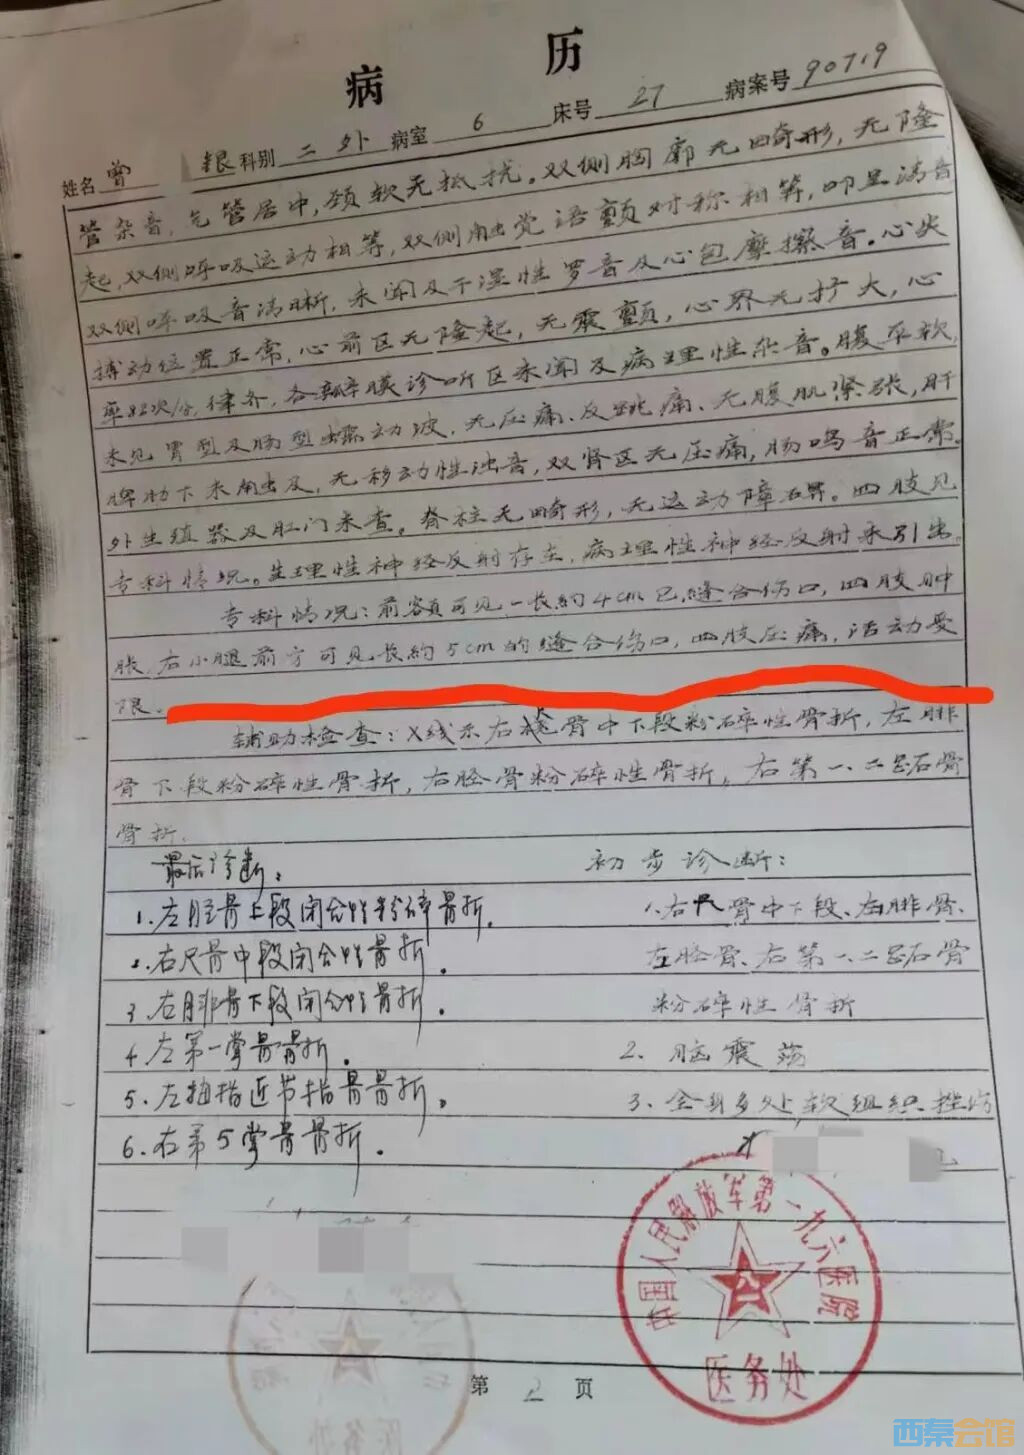 病 历
姓名 曾 银 科别 二外 病室 6 床号 27 病案号 90719
管杂音，气管居中，颈软无抵抗。双侧胸廓无畸形，无隆
起，双侧呼吸运动相等，双侧触觉语颤对称相等，叩呈清音
双侧呼吸音清晰，未闻及干湿性罗音及心包摩擦音。心尖
搏动位置正常，心前区无隆起，无震颤，心界无扩大，心
率82次/分，律齐，各瓣膜诊听区未闻及病理性杂音。腹平软，
未见胃型及肠型蠕动波，无压痛、反跳痛、无腹肌紧张，肝
脾肋下未触及，无移动性浊音，双肾区无压痛，肠鸣音正常。
外生殖器及肛门未查。脊柱无畸形，无运动障碍。四肢见
专科情况。生理性神经反射存在，病理性神经反射未引出。
专科情况：前额可见一长约4cm已缝合伤口，四肢肿
胀，右小腿前方可见长约5cm的缝合伤口，四肢压痛，活动受
限。
辅助检查：X线示右 骨中下段粉碎性骨折，左腓
骨下段粉碎性骨折，右胫骨粉碎性骨折，右第一、二 骨
骨折。
最后诊断： 初步诊断：
1.左胫骨上段闭合性粉碎骨折。 1.右尺骨中下段、左腓骨、
2.右尺骨中段闭合性骨折。 左胫骨、右第一、二 骨
3.右腓骨下段闭合性骨折。 粉碎性骨折
4.左第一掌骨骨折。 2.脑震荡
5.左拇指近节指骨骨折。 3.全身多处软组织挫伤
6.右第5掌骨骨折。
中国人民解放军第一九六医院
医务处
医务处
第 2 页
西秦会馆